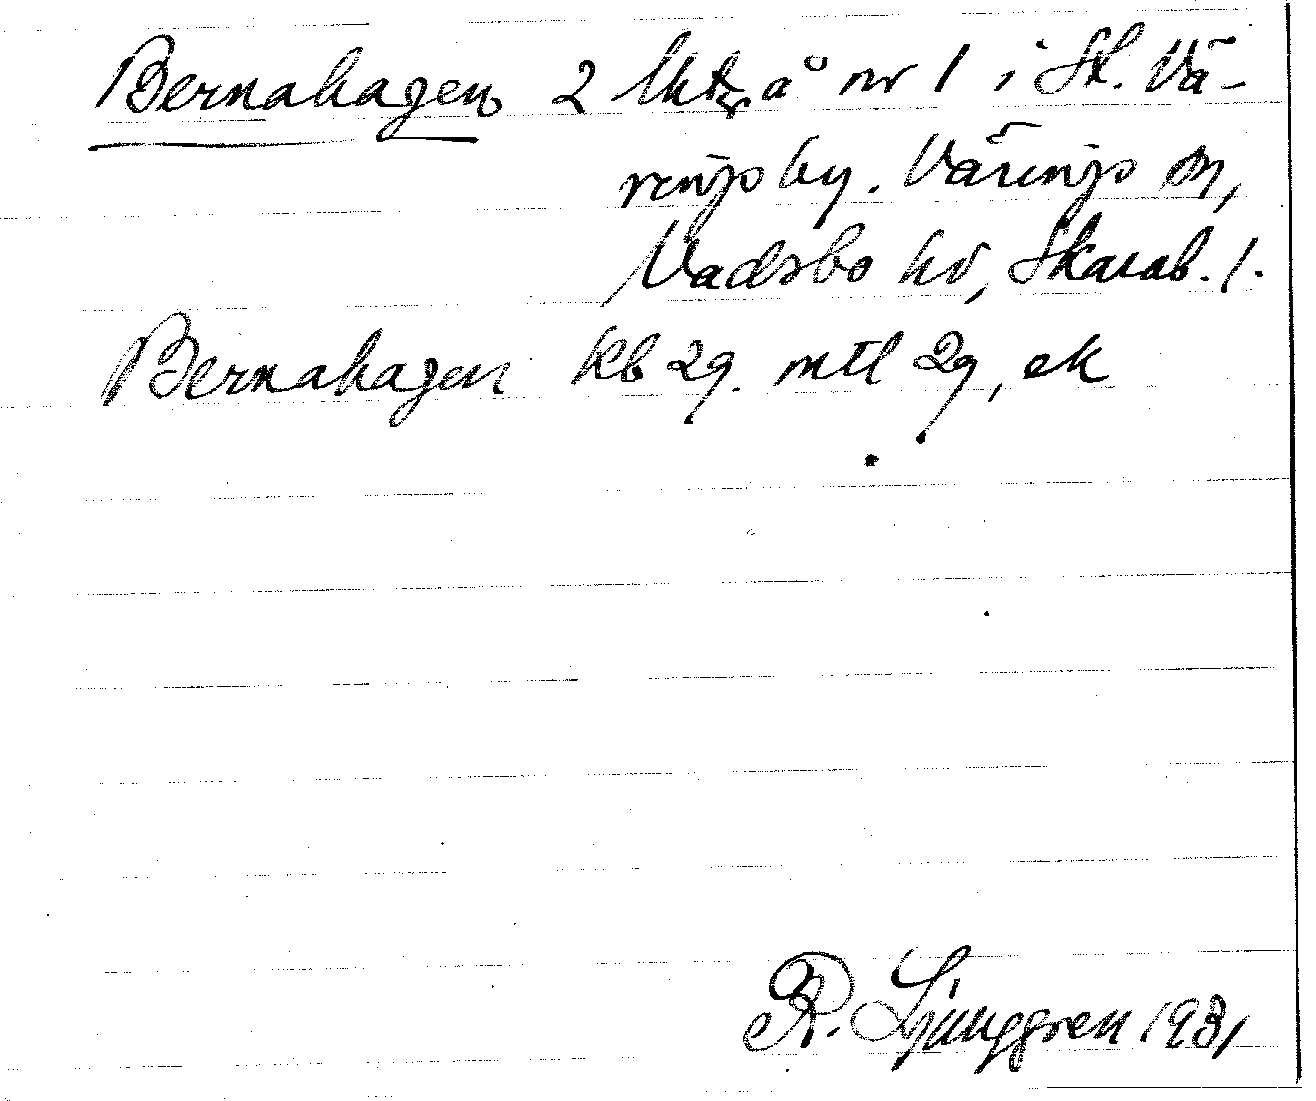 Bernahagen 2 lht:r å nr 1 i St. Vä-
rings by. Värings sn,
Vadsbo hd, Skarab. l.
Bernahagen kb 29. mtl 29, ek
R. Ljunggren 1931